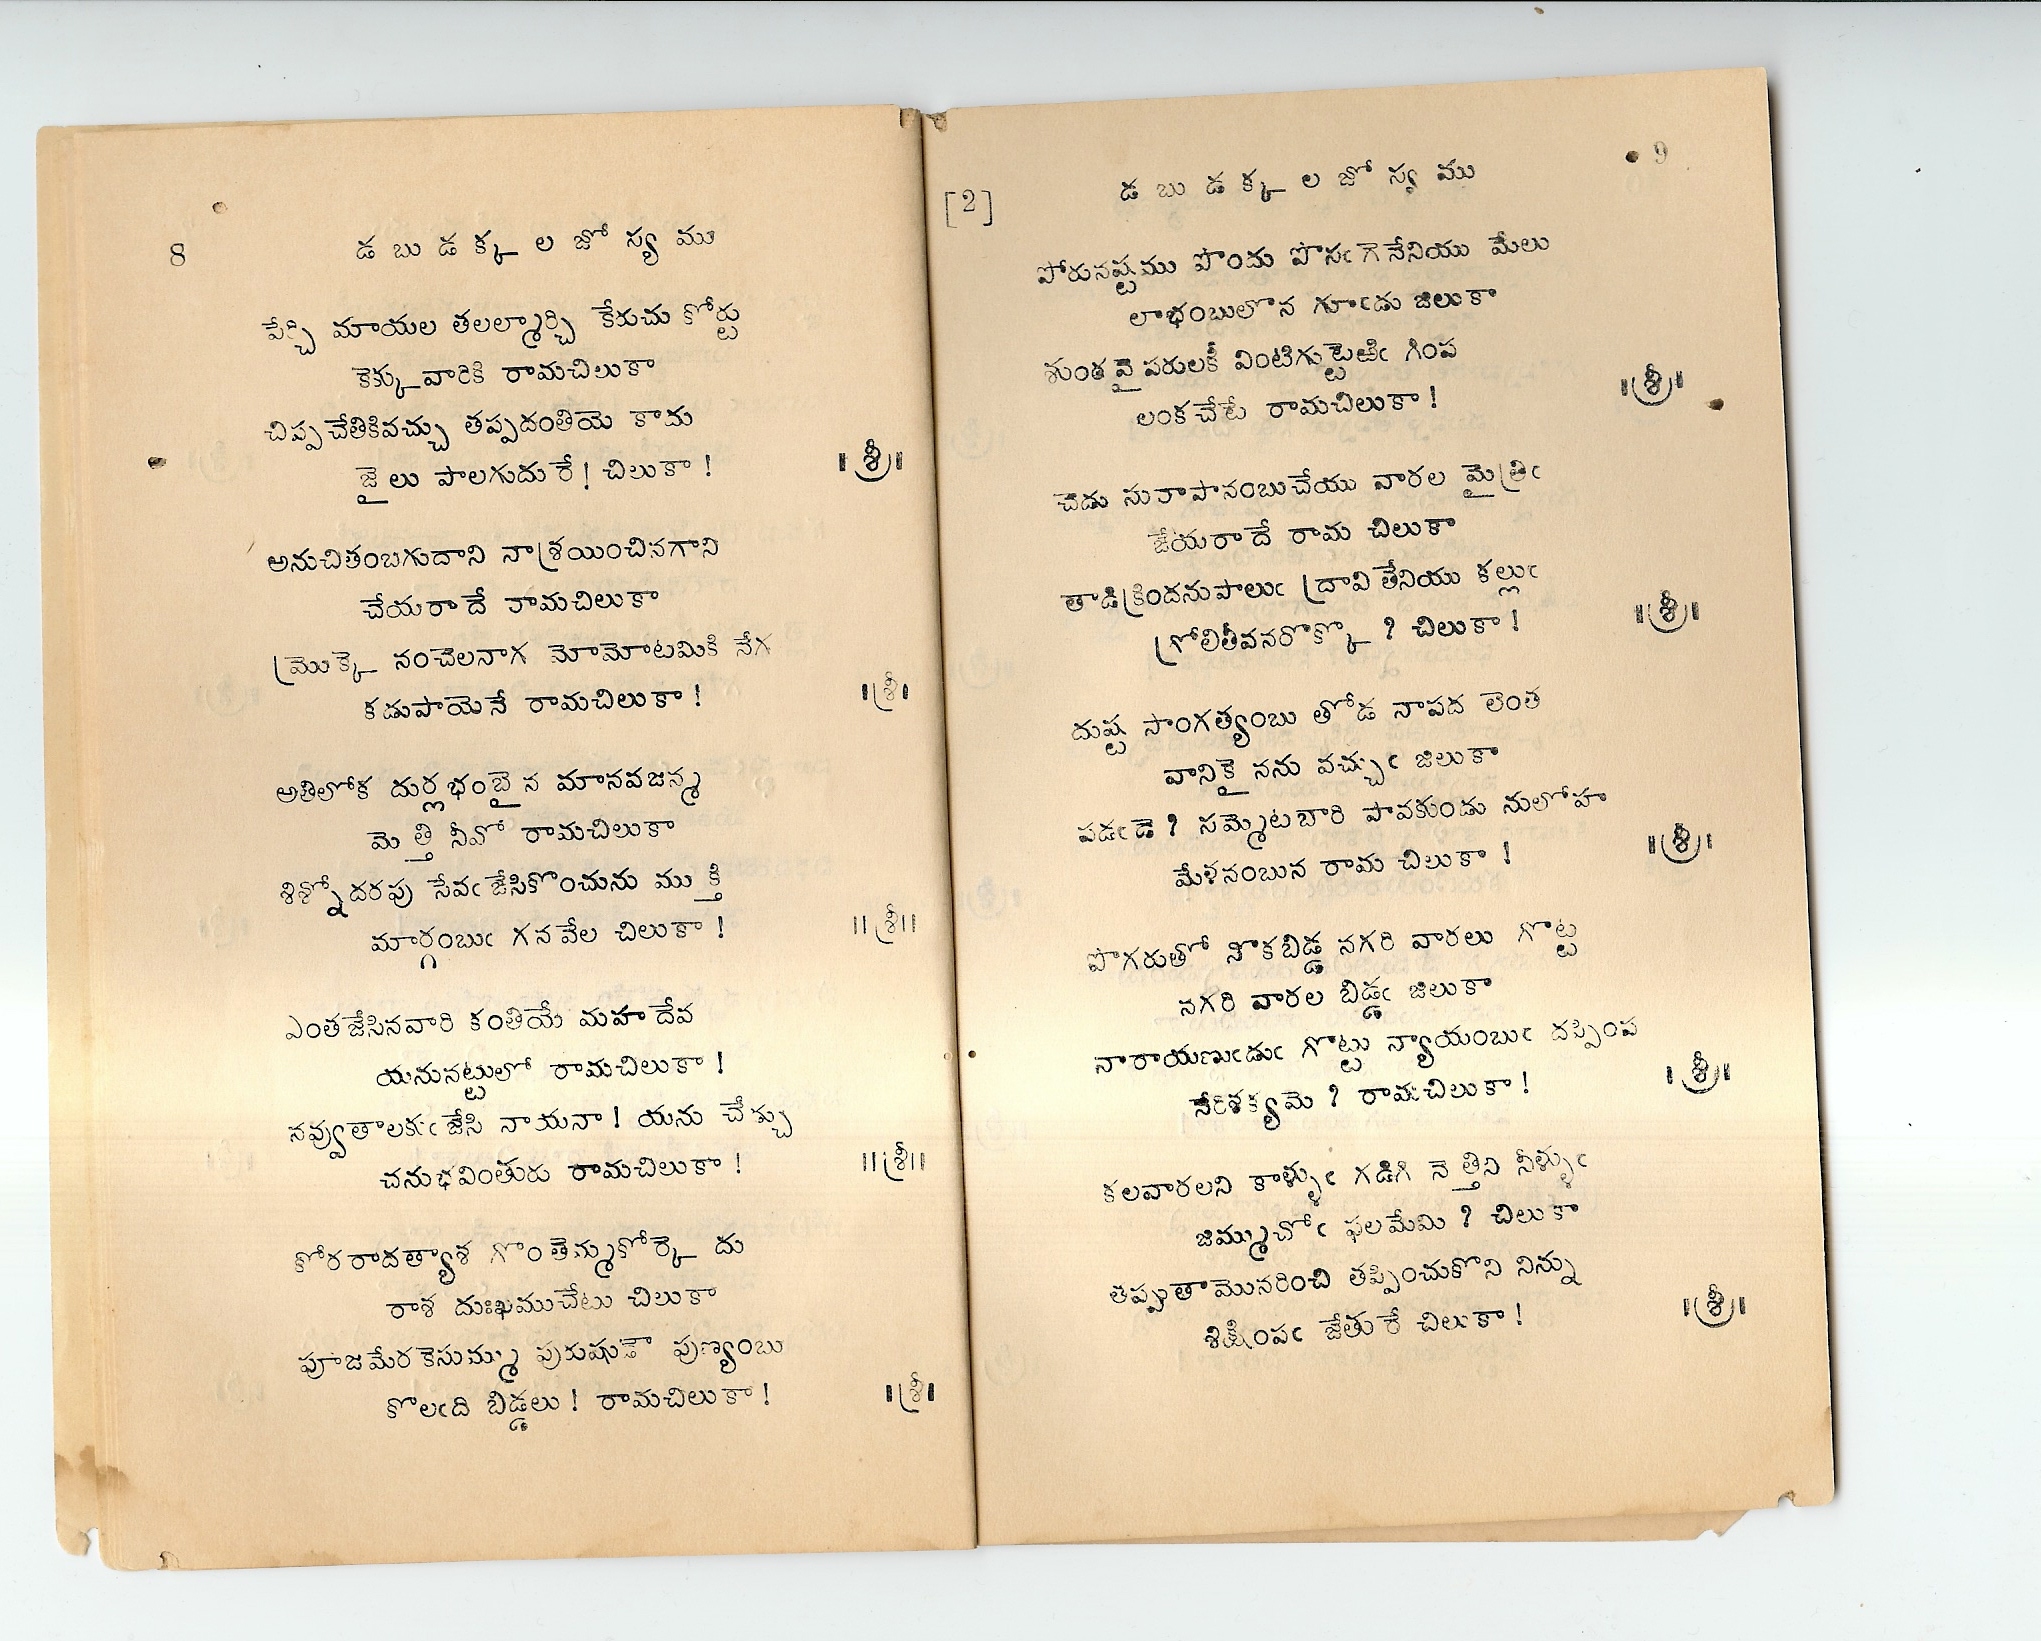 8
డ బు డ క్క ల జో స్య ము
పేర్చి మాయల తలల్మార్చి కేకుచు కోర్టు
కెక్కువారికి రామచిలుకా
చిప్పచేతికివచ్చు తప్పదంతియె కాదు
జైలు పాలగుదురే! చిలుకా! ॥శ్రీ॥
అనుచితంబగుదాని నాశ్రయించినగాని
చేయరాదే రామచిలుకా
మ్రొక్కె నంచెలనాగ మోమోటమికి నేగ
కడుపాయెనే రామచిలుకా! ॥శ్రీ॥
అతిలోక దుర్లభంబైన మానవజన్మ
మెత్తి నీవో రామచిలుకా
శిశ్నోదరపు సేవఁ జేసికొంచును ముక్తి
మార్గంబుఁ గనవేల చిలుకా! ॥శ్రీ॥
ఎంతజేసినవారి కంతియే మహదేవ
యనునట్టులో రామచిలుకా!
నవ్వుతాలకుఁ జేసి నాయనా! యను చేడ్చు
చనుభవింతురు రామచిలుకా! ॥శ్రీ॥
కోరరాదత్యాశ గొంతెమ్మకోర్కె దు
రాశ దుఃఖముచేటు చిలుకా
పూజమేరకెసుమ్ము పురుషుడౌ పుణ్యంబు
కొలఁది బిడ్డలు! రామచిలుకా! ॥శ్రీ॥
9
[2]
డ బు డ క్క ల జో స్య ము
పోరునష్టము పొందు పొసఁగెనేనియు మేలు
లాభంబులొన గూఁడు జిలుకా
శుంఠవై పరులకీ వింటిగుట్టెఱిఁ గింప
లంకచేటే రామచిలుకా! ॥శ్రీ॥
చెడు సురాపానంబుచేయు వారల మైత్రిఁ
జేయరాదే రామ చిలుకా
తాడిక్రిందనుపాలుఁ ద్రావితేనియు కల్లుఁ
గ్రోలితీవనరొక్కొ? చిలుకా! ॥శ్రీ॥
దుష్ట సాంగత్యంబు తోడ నాపద లెంత
వానికై నను వచ్చుఁ జిలుకా
పడఁడె? సమ్మెటబారి పావకుండు నులోహ
మేళనంబున రామ చిలుకా! ॥శ్రీ॥
పొగరుతో నొకబిడ్డ నగరి వారలు గొట్ట
నగరి వారల బిడ్డఁ జిలుకా
నారాయణుఁడుఁ గొట్టు న్యాయంబుఁ దప్పింప
నేరిశక్యమె? రామచిలుకా! ॥శ్రీ॥
కలవారలని కాళ్ళుఁ గడిగి నెత్తిని నీళ్ళుఁ
జిమ్ముచోఁ ఫలమేమి? చిలుకా
తప్పుతామొనరించి తప్పించుకొని నిన్ను
శిక్షింపఁ జేతురే చిలుకా! ॥శ్రీ॥